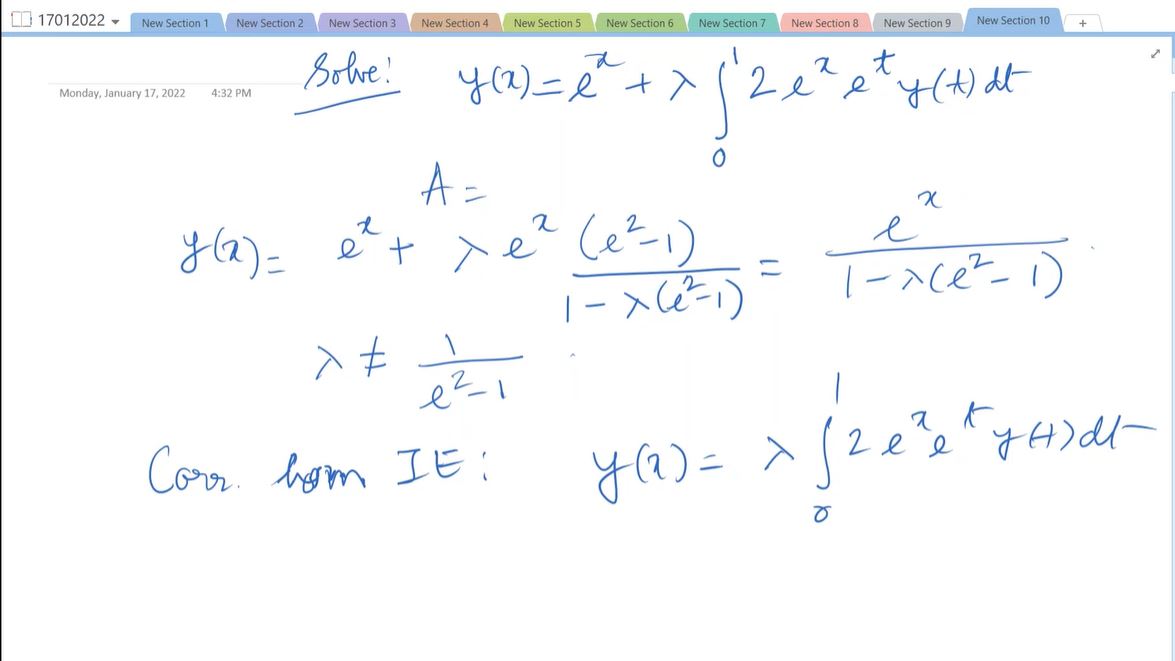 17012022 New Section 1 New Section 2 New Section 3 New Section 4 New Section 5 New Section 6 New Section 7 New Section 8 New Section 9 New Section 10 +
Solve! y(x) = e^x + λ ∫_0^1 2 e^x e^t y(t) dt
Monday, January 17, 2022 4:32 PM
A =
y(x) = e^x + λ e^x (e^2 - 1) / (1 - λ(e^2 - 1)) = e^x / (1 - λ(e^2 - 1)).
λ ≠ 1 / (e^2 - 1)
Corr. hom IE : y(x) = λ ∫_0^1 2 e^x e^t y(t) dt